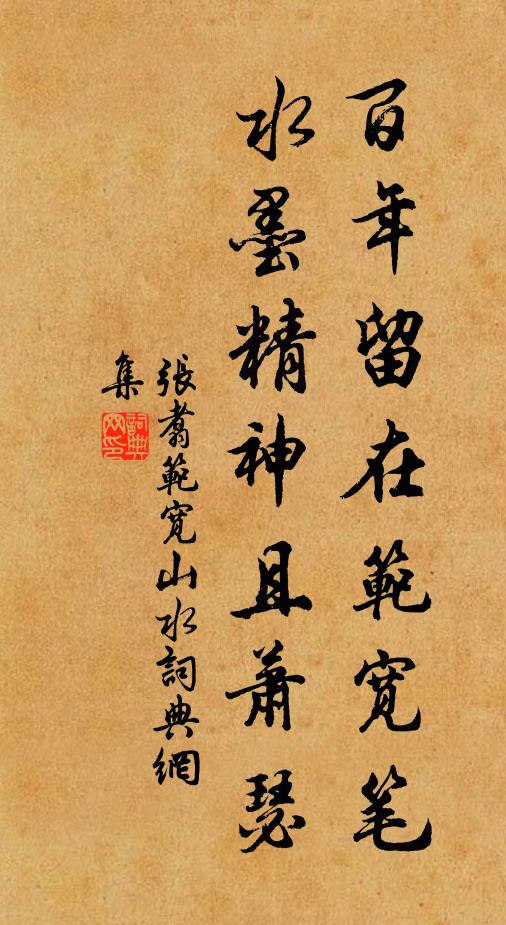 百年留在範寬笔
水墨精神且蕭瑟
張翥範寬山水詞典網
集
詞典
网印